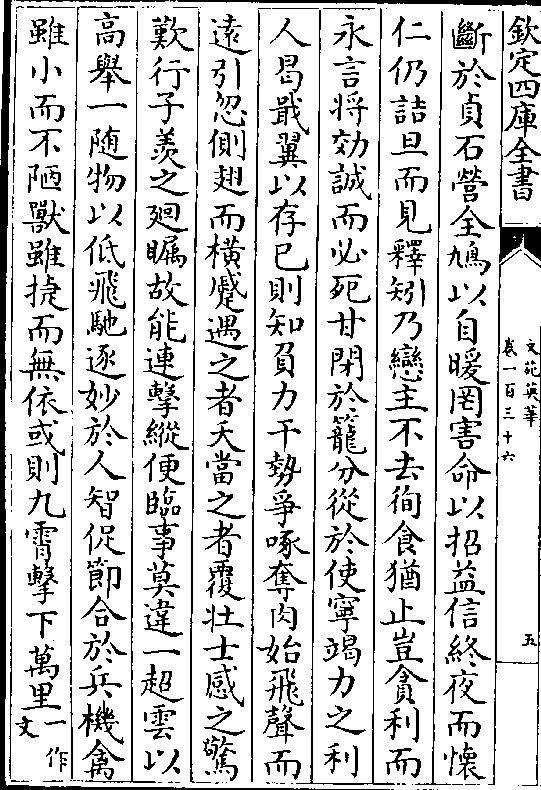 欽定四庫全書
文苑英華
卷一百三十六
五
斷於貞石營全鳩以自暖罔害命以招益信終夜而懷
仁仍詰旦而見釋矧乃戀主不去徇食猶止豈貪利而
永言將効誠而必死甘閉於籠分從於使寧竭力之利
人曷戢翼以存已則知負力干勢爭啄奪肉始飛聲而
遠引忽側翅而橫蹙遇之者夭當之者覆壯士感之驚
歎行子羨之廻矚故能連擊縱便臨事莫違一超雲以
高舉一随物以低飛馳逐妙於人智促節合於兵機禽
雖小而不陋獸雖捷而無依或則九霄擊下萬里一作文